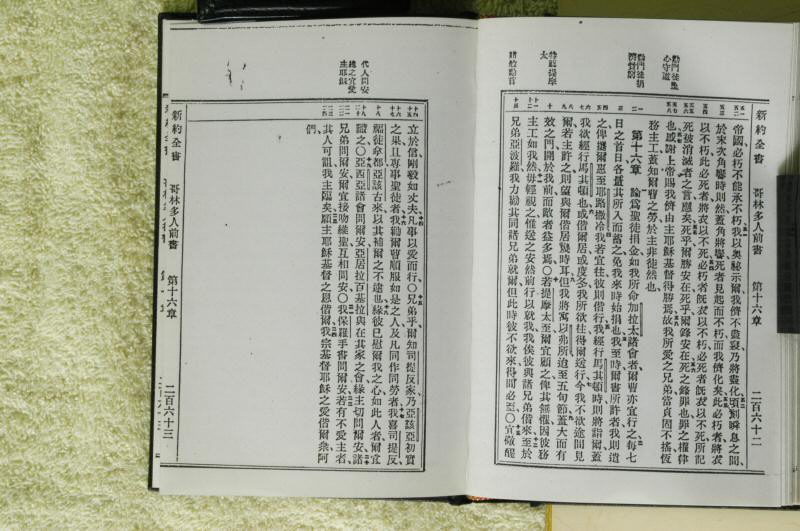 新約全書 哥林多人前書 第十六章 二百六十二
帝國必朽不能承不朽我以奧秘示爾我儕不盡寢乃將盡化頃刻瞬息之間
於末次角響時則然蓋角將響死者見起而不朽而我儕化矣此必朽者將衣
以不朽此必死者將衣以不死必朽者旣衣以不朽必死者旣衣以不死所記
死被消滅者之言應矣死乎爾勝安在死乎爾鋒安在死之鋒罪也罪之權律
也感謝上帝賜我儕由主耶穌基督得勝焉故我所愛之兄弟當貞固不搖恆
務主工蓋知爾曹之勞於主非徒然也
第十六章 論爲聖徒捐金如我所命加拉太諸會者爾曹亦宜行之每七
日之首日各置其所入而蓄之免我來時始捐也我至時爾曹所許者我則遺
之俾攜爾惠至耶路撒冷我若宜往彼則偕行我經行馬其頓時則將詣爾蓋
我欲經行馬其頓也或偕爾居或度冬我所欲往得爾送行今我不欲途間見
爾若主許之則望與爾偕居幾時耳但我將寓以弗所迨至五旬節蓋大而有
效之門闢於我前而敵者益多焉〇若提摩太至爾宜顧之俾其無懼因彼務
主工如我然毋輕視之惟送之安然前行以就我我俟彼與諸兄弟偕來至於
兄弟亞波羅我力勸其同諸兄弟就爾但此時彼不欲來得間必至〇宜儆醒
新約全書 哥林多人前書 第十六章 二百六十三
立於信剛毅如丈夫凡事以愛而行〇兄弟乎爾知司提反家乃亞該亞初實
之果且專事聖徒者我勸爾曹順服如是之人及凡同作同勞者我喜司提反
福徒拿都亞該古來以其補爾之不逮也緣彼已慰爾我之心如此人者爾宜
識之〇亞西亞諸會問爾安亞居拉百基拉與在其家之會緣主切問爾安諸
兄弟問爾安爾宜接吻緣聖互相問安〇我保羅手書問爾安若有不愛主者
其人可詛我主臨矣願主耶穌基督之恩偕爾我宗基督耶穌之愛偕爾衆阿
們
代人問安